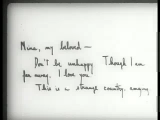 Mine, my beloved —
Don't be unhappy. Though I am
far away. I love you
This is a strange country, angry